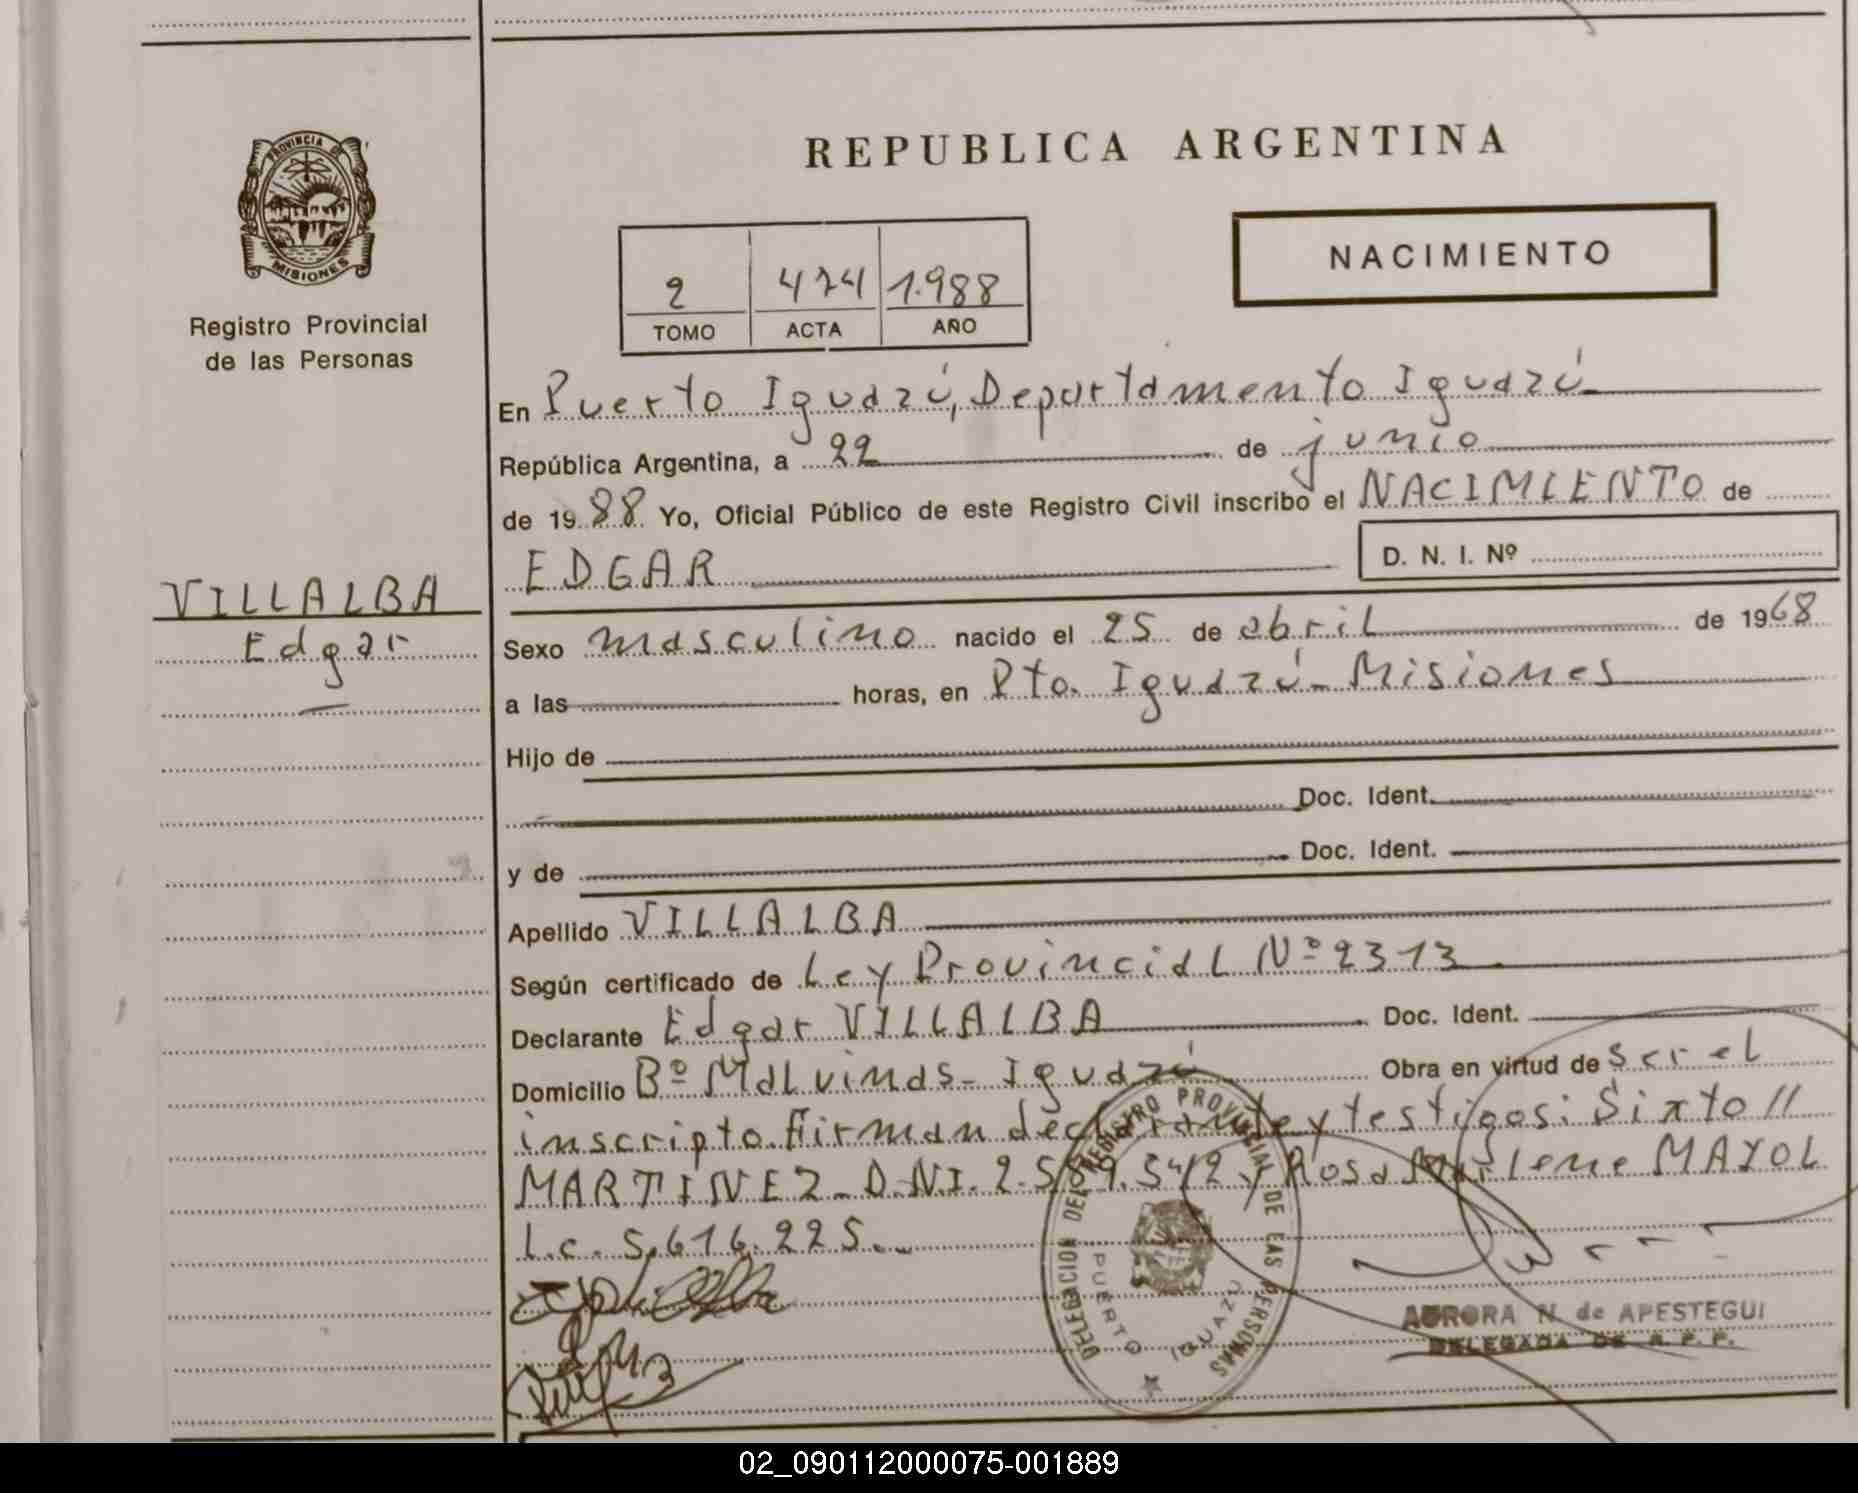 PROVINCIA DE
MISIONES
Registro Provincial
de las Personas
VILLALBA
Edgar
REPUBLICA ARGENTINA
NACIMIENTO
2 474 1.988
TOMO ACTA AÑO
En Puerto Iguazú, Departamento Iguazú
República Argentina, a 22 de junio
de 1988 Yo, Oficial Público de este Registro Civil inscribo el NACIMIENTO de
EDGAR D. N. I. Nº
Sexo masculino nacido el 25 de abril de 1968
a las horas, en Pto. Iguazú - Misiones
Hijo de
Doc. Ident.
y de Doc. Ident.
Apellido VILLALBA
Según certificado de Ley Provincial Nº 2313
Declarante Edgar VILLALBA Doc. Ident.
Domicilio Bº Malvinas - Iguazú Obra en virtud de ser el
inscripto. Firman declarante y testigos: Sixto //
MARTINEZ - D.N.I. 2.589.542 y Rosa Marlene MAYOL
L.c. 5.616.225.-
DELEGACION DEL REGISTRO PROVINCIAL DE LAS PERSONAS
PUERTO IGUAZU
AURORA N. de APESTEGUI
DELEGADA DE R. P. P.
02_090112000075-001889